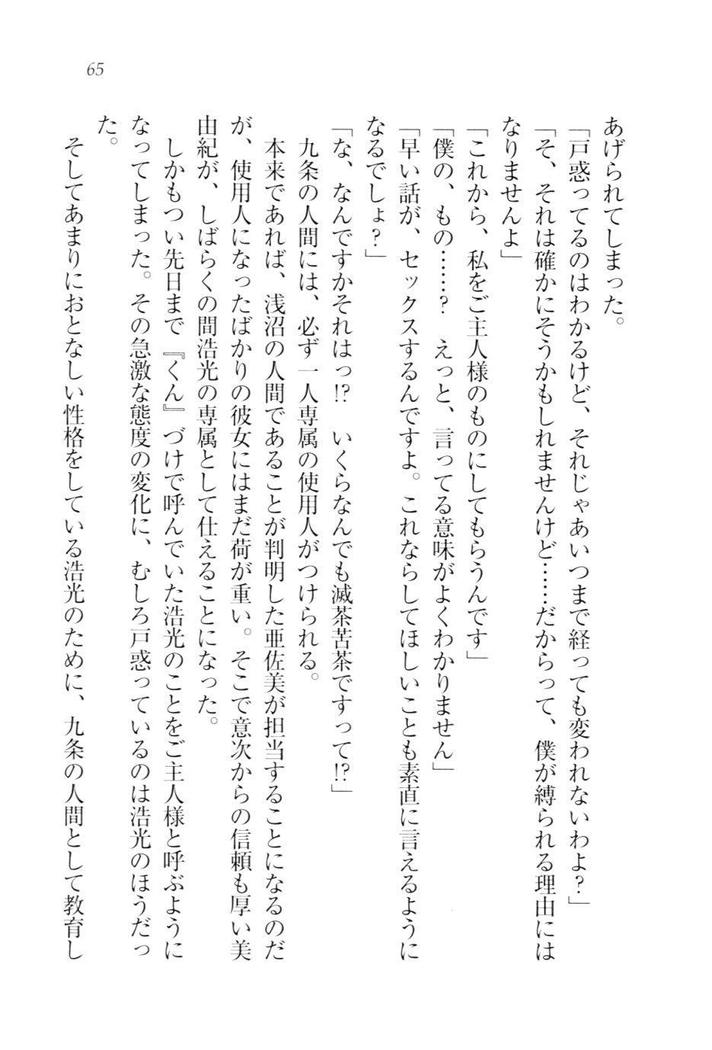 65
あげられてしまった。
「戸惑ってるのはわかるけど、それじゃあいつまで経っても変われないわよ？」
「そ、それは確かにそうかもしれませんけど……だからって、僕が縛られる理由には
なりませんよ」
「これから、私をご主人様のものにしてもらうんです」
「僕の、もの……？　えっと、言ってる意味がよくわかりません」
「早い話が、セックスするんですよ。これならしてほしいことも素直に言えるように
なるでしょ？」
「な、なんですかそれはっ!?　いくらなんでも滅茶苦茶ですって!?」
九条の人間には、必ず一人専属の使用人がつけられる。
本来であれば、浅沼の人間であることが判明した亜佐美が担当することになるのだ
が、使用人になったばかりの彼女にはまだ荷が重い。そこで意次からの信頼も厚い美
由紀が、しばらくの間浩光の専属として仕えることになった。
しかもつい先日まで『くん』づけで呼んでいた浩光のことをご主人様と呼ぶように
なってしまった。その急激な態度の変化に、むしろ戸惑っているのは浩光のほうだっ
た。
そしてあまりにおとなしい性格をしている浩光のために、九条の人間として教育し